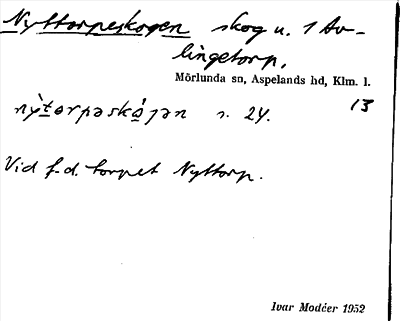 Nyttorpeskogen skog u. 1 Av-
lingetorp.
Mörlunda sn, Aspelands hd, Klm. l.
13
nỳtərpəskǫ́gən s. 24.
Vid f.d. torpet Nyttorp.
Ivar Modéer 1952